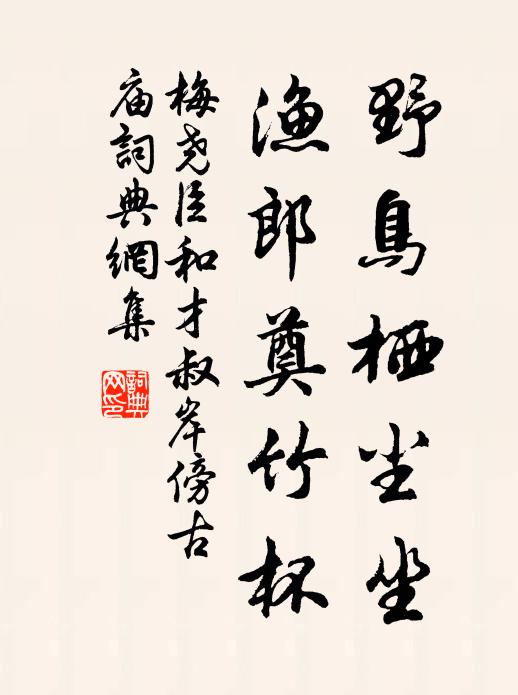 野鳥栖尘坐
渔郎奠竹杯
梅尧臣和才叔岸傍古
庙詞典網集
詞典网印